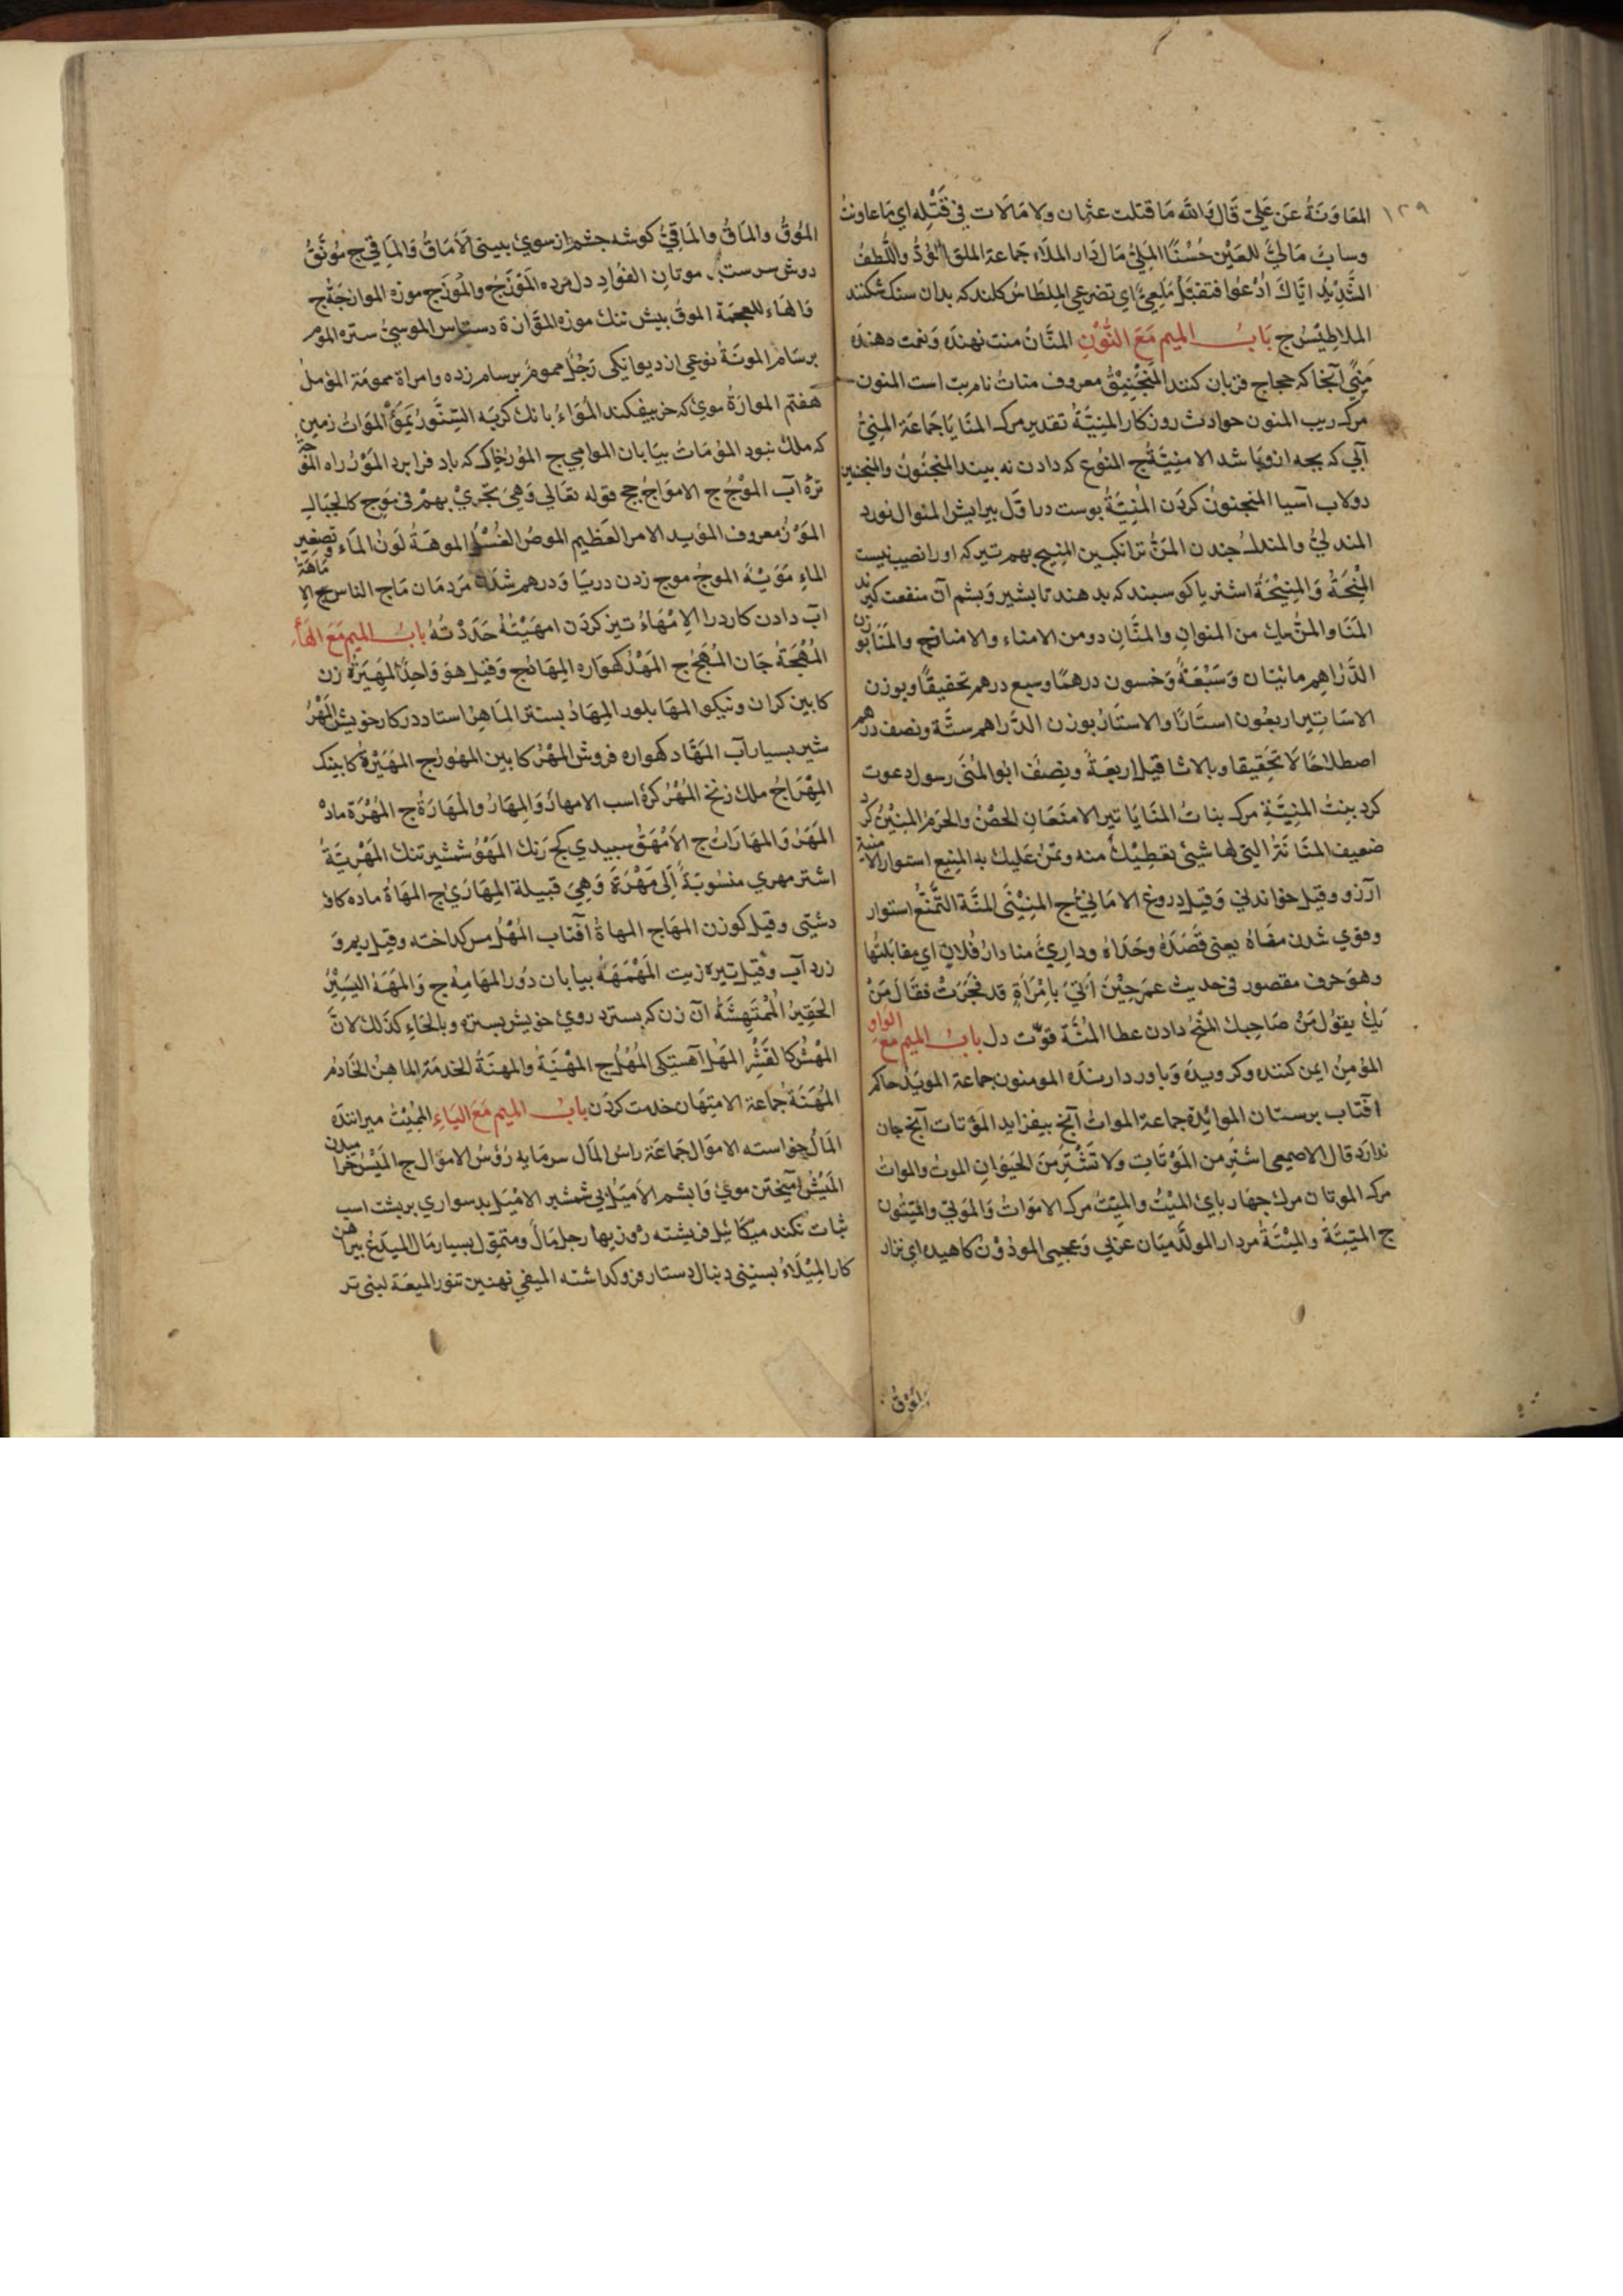 ١٢٩
المعاونة عن علي قال والله ما قتلت عثمان ولا مالات في قتله اي ما عاونت
وساب مالئ للعين حسنا الملئ مال دار الملاء جماعة الملق الود واللطف
الشديد اياك ادعوا فتقبل ملقي اي تضرعي الملطاس كلند كه بدان سنك شكنند
الملاطيس ج باب الميم مع النون المنان منت نهنده ونعمت دهنده
منى آنجا كه حجاج قربان كنند المنجنيق معروف منات نام بت است المنون
مرك ريب المنون حوادث روزكار المنية تقدير مرك المنايا جماعة المني
آبي كه بچه ازو باشد الامنية ج المنوع كه دادن نه بيند المنجنون والمنجنين
دولاب آسيا المنجنون كردن المنية پوست دباقل پيرايش المنوال نورد
المندلي والمندل چندن المن ترانكبين المنيح بهم تير كه اورا نصيب نيست
المنحة والمنيحة اشتر يا كوسبند كه بدهند تا بشير وبشم آن منفعت كيرند
المنا والمن يك من المنوان والمنان دو من الامناء والامنان ج والمنا بوزن
الدراهم مائتان وسبعة وخمسون درهما وسبع درهم تحقيقا وبوزن
الاساتير اربعون استارا والاستار بوزن الدراهم ستة ونصف درهم
اصطلاحا لا تحقيقا وبالاثاقيل اربعة ونصف ابو المنى رسول دعوت
كرد بنت المنية مرك بنات المنايا تير الامنعان الحصن والحرم المنين كرد
ضعيف المنانة التي لها شيئ تعطيك منه وتمن عليك به المنيع استوار الامنية
آرزو وقيل خواندني وقيل دروغ الاماني ج المنينى المنة التمنع استوار
وقوي شدن مناه يعني قصده وحذاه وداري منا دار فلان اي مقابلتها
وهو حرف مقصور في حديث عمر حين اتي بامراة قد فجرت فقال من
بك يقول من صاحبك المنح دادن عطا المنة قوت دل باب الميم مع الواو
المؤمن ايمن كننده وكرويده وباور دارنده المومنون جماعة المويد حاكم
آفتاب برستان الموائدة جماعة الموات آنچ بيفزايد الموتات آنچ جان
ندارد قال الاصمعي اشتر من الموتات ولا تشتر من الحيوان الموت والموات
مرك الموتان مرك چهارپاي الميت والميت مرك الاموات والموتى والميتون
ج الميتة والميتة مردار المولد ميان عربي وعجمي الموذون كاهيده اي نزار
الموق
الموق والماق والماقي كوشه چشم از سوي بيني الاماق والماقي ج موثق
دوش سرست موتان الفؤاد دل مرده الموزج والموزج موزه الموازجة ج
والهاء للعجمة الموق بيش تنك موزه المقانة دستاس الموسى ستره الموم
برسام الموتة نوعي از ديوانكى رجل مموم برسام زده وامراة مومة المؤمل
هفتم الموارة موي كه خر بيفكند المواء بانك كربه السنور يموء الموات زمين
كه ملك نبود المؤمات بيابان الموامي ج المور خاك كه باد فرا برد المور راه الموجة
تره آب الموج ج الامواج جج قوله تعالى وهي تجري بهم في موج كالجبال
الموز معروف المؤيد الامر العظيم الموص الغسل الموهة لون الماء وتصغير
الماء مويه الموج موج زدن دريا ودرهم شدن مردمان ماج الناس ج الاماهة
آب دادن كارد را الامهاء تيز كردن امهيته حددته باب الميم مع الهاء
المهجة جان المهج ج المهد كهواره المهاد ج وقيل هو واحد المهيرة زن
كابين كران ونيكو المها بلور المهاد بستر الماهر استاد در كار خويش المهر
شير بسيار آب المهاد كهواره فروش المهر كابين المهور ج المهيرة كابينك
المهراج ملك زنج المهر كره اسب الامهار والمهار والمهارة ج المهرة ماده
المهر والمهارات ج الامهق سپيدي كچ رنك المهو شمشير تنك المهرية
اشتر مهري منسوبة الى مهرة وهي قبيلة المهاري ج المهاة ماده كاو
دشتي وقيل كوزن المهاج المهاة آفتاب المهل مس كداخته وقيل ريم و
زرد آب وقيل تيره زيت المهمهة بيابان دور المهامه ج والمهه اليسير
الحقير الممتهشة آن زن كه بسترد روي خويش بستره وبالحاء كذلك لان
المهش كالقشر المهل آهستكى المهل ج المهنية والمهنة الخدمة الماهن الخادم
المهنة جماعة الامتهان خدمت كردن باب الميم مع الياء المميت ميراننده
المال خواسته الاموال جماعة راس المال سرمايه رؤس الاموال ج الميس خراميدن
الميش آميختن موي وابشم الاميل بي شمشير الاميل بد سواري بر بشت اسب
ثبات نكند ميكائيل فريشته روزيها رجل مال ومتمول بسيار مال الميدع پيراهن
كار الميلاء بسيني دنبال دستار فروكذاشته الميفى نهنين تنور الميعة لبنى تر